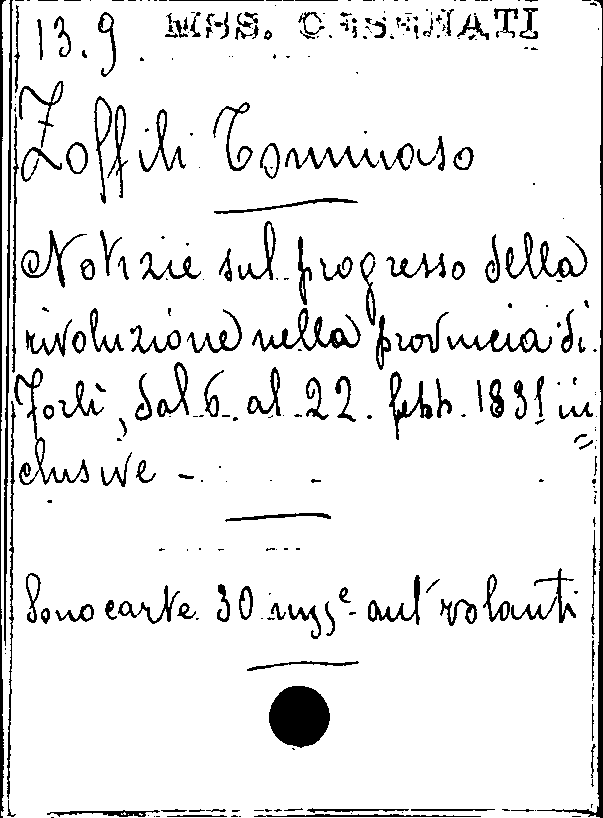 13.9 MSS. CESENATI
Zoffili Tommaso
Notizie sul progresso della
rivoluzione nella provincia di
Forlì, dal 6 al 22 febb. 1831 in
clusive -
Sono carte 30 mss.e aut. volanti